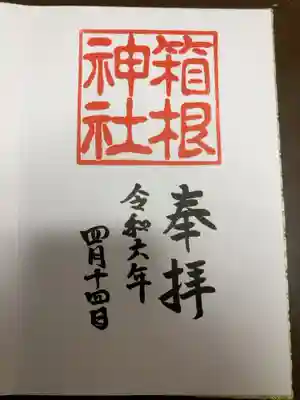 奉拝
箱根
神社
令和六年
四月十四日